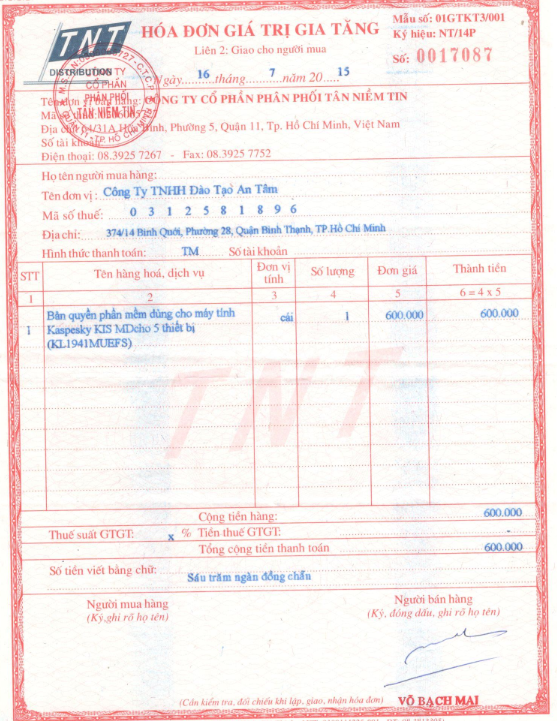 TNT
DISTRIBUTION
HÓA ĐƠN GIÁ TRỊ GIA TĂNG
Liên 2: Giao cho người mua
Mẫu số: 01GTKT3/001
Ký hiệu: NT/14P
Số: 0017087
Ngày 16 tháng 7 năm 20 15
CÔNG TY
CỔ PHẦN
PHÂN PHỐI
TÂN NIỀM TIN
Tên đơn vị bán hàng: CÔNG TY CỔ PHẦN PHÂN PHỐI TÂN NIỀM TIN
Mã số thuế:
Địa chỉ: 64/31A Hòa Bình, Phường 5, Quận 11, Tp. Hồ Chí Minh, Việt Nam
Số tài khoản:
Điện thoại: 08.3925 7267 - Fax: 08.3925 7752
Họ tên người mua hàng:
Tên đơn vị: Công Ty TNHH Đào Tạo An Tâm
Mã số thuế: 0 3 1 2 5 8 1 8 9 6
Địa chỉ: 374/14 Bình Quới, Phường 28, Quận Bình Thạnh, TP.Hồ Chí Minh
Hình thức thanh toán: TM Số tài khoản
STT Tên hàng hoá, dịch vụ Đơn vị tính Số lượng Đơn giá Thành tiền
1 2 3 4 5 6 = 4 x 5
1 Bản quyền phần mềm dùng cho máy tính cái 1 600.000 600.000
Kaspesky KIS MDcho 5 thiết bị
(KL1941MUEFS)
TNT
Cộng tiền hàng: 600.000
Thuế suất GTGT: x % Tiền thuế GTGT: -
Tổng cộng tiền thanh toán 600.000
Số tiền viết bằng chữ: Sáu trăm ngàn đồng chẵn
Người mua hàng Người bán hàng
(Ký,ghi rõ họ tên) (Ký, đóng dấu, ghi rõ họ tên)
(Cần kiểm tra, đối chiếu khi lập, giao, nhận hóa đơn) VÕ BẠCH MAI